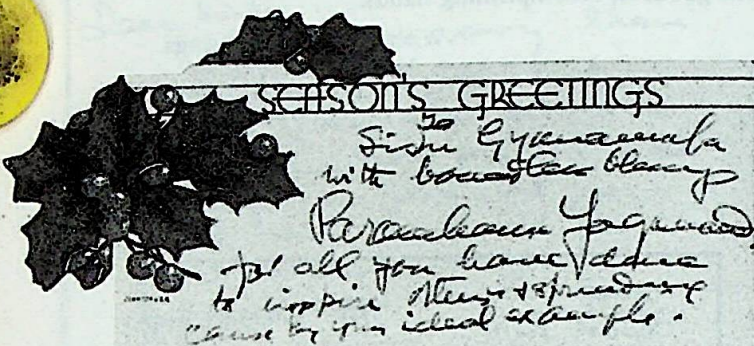 SEASON'S GREETINGS
To
Sister Gyanamata
with boundless blessings
Paramhansa Yogananda
for all you have done
to inspire others & spreading
cause by your ideal example.